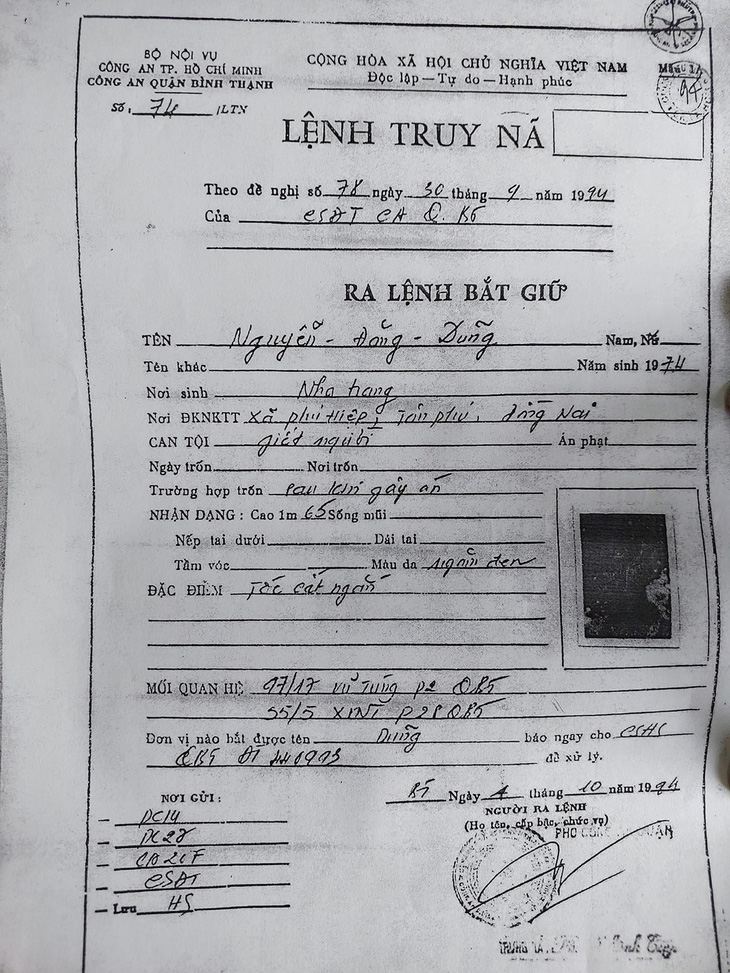 BỘ NỘI VỤ
CÔNG AN TP. HỒ CHÍ MINH
CÔNG AN QUẬN BÌNH THẠNH
Số: 74 /LTN
CỘNG HÒA XÃ HỘI CHỦ NGHĨA VIỆT NAM
Độc lập — Tự do — Hạnh phúc
LỆNH TRUY NÃ
Theo đề nghị số 78 ngày 30 tháng 9 năm 1994
Của CSĐT CA Q. BT
RA LỆNH BẮT GIỮ
TÊN Nguyễn - Đăng - Dũng Nam, Nữ
Tên khác Năm sinh 1974
Nơi sinh Nha trang
Nơi ĐKNKTT Xã phú Hiệp, Tân phú, Đồng Nai
CAN TỘI giết người Án phạt
Ngày trốn Nơi trốn
Trường hợp trốn sau khi gây án
NHẬN DẠNG : Cao 1m 65 Sống mũi
Nếp tai dưới Dái tai
Tầm vóc Màu da ngăm đen
ĐẶC ĐIỂM Tóc cắt ngắn
MỐI QUAN HỆ 97/17 Vũ Tùng P2 QBT
55/5 XVNT P28 QBT
Đơn vị nào bắt được tên Dũng báo ngay cho
QBT ĐT 440993 để xử lý.
NƠI GỬI :
— PC14
—
—
— CSĐT
— Lưu HS
BT Ngày 4 tháng 10 năm 1994
NGƯỜI RA LỆNH
(Họ tên, cấp bậc, chức vụ)
PHÓ CÔNG AN QUẬN